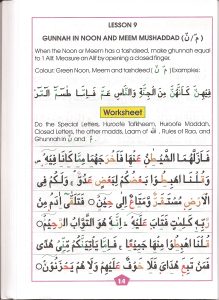 LESSON 9
GUNNAH IN NOON AND MEEM MUSHADDAD (نّ / مّ)
When the Noon or Meem has a tashdeed, make ghunnah equal
to 1 Alif. Measure an Alif by opening a closed finger.
Colour: Green Noon, Meem and tashdeed (نّ / مّ) Examples:
Worksheet
Do the Special Letters, Huroofe Tafkheem, Huroofe Maddah,
Closed Letters, the other madds, Laam of الله, Rules of Rao, and
Ghunnah in نّ and مّ.
فَاَزَلَّهُمَا الشَّيْطٰنُ عَنْهَا فَاَخْرَجَهُمَا مِمَّا كَانَا فِيْهِ
وَقُلْنَا اهْبِطُوْا بَعْضُكُمْ لِبَعْضٍ عَدُوٌّ وَلَكُمْ فِى
الْاَرْضِ مُسْتَقَرٌّ وَّمَتَاعٌ اِلٰى حِيْنٍ فَتَلَقّٰى اٰدَمُ مِنْ
رَّبِّهٖ كَلِمٰتٍ فَتَابَ عَلَيْهِ اِنَّهٗ هُوَ التَّوَّابُ الرَّحِيْمُ
قُلْنَا اهْبِطُوْا مِنْهَا جَمِيْعًا فَاِمَّا يَاْتِيَنَّكُمْ مِّنِّىْ هُدًى
فَمَنْ تَبِعَ هُدَاىَ فَلَا خَوْفٌ عَلَيْهِمْ وَلَا هُمْ يَحْزَنُوْنَ
14